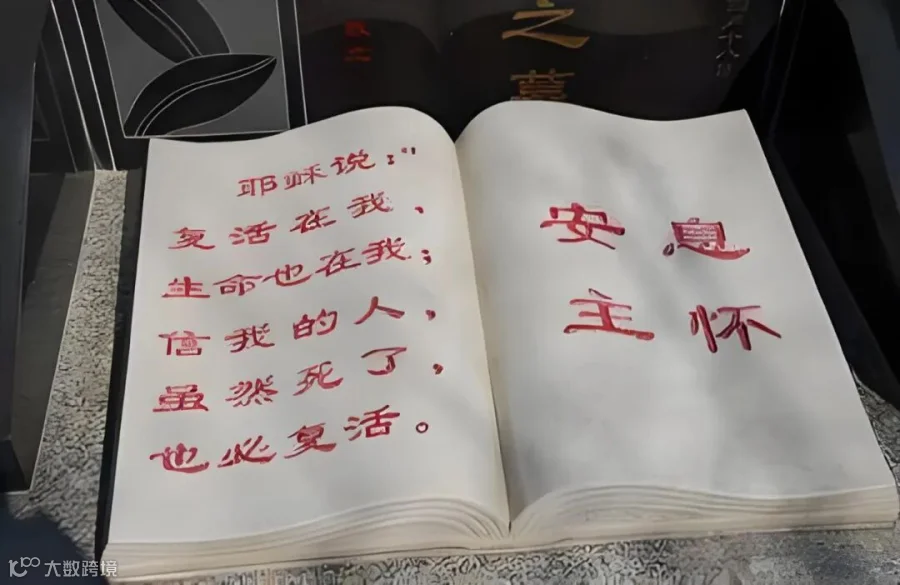 之墓
敬立
耶稣说:"
复活在我、
生命也在我;
信我的人,
虽然死了,
也必复活。
安息
主怀
大数跨境